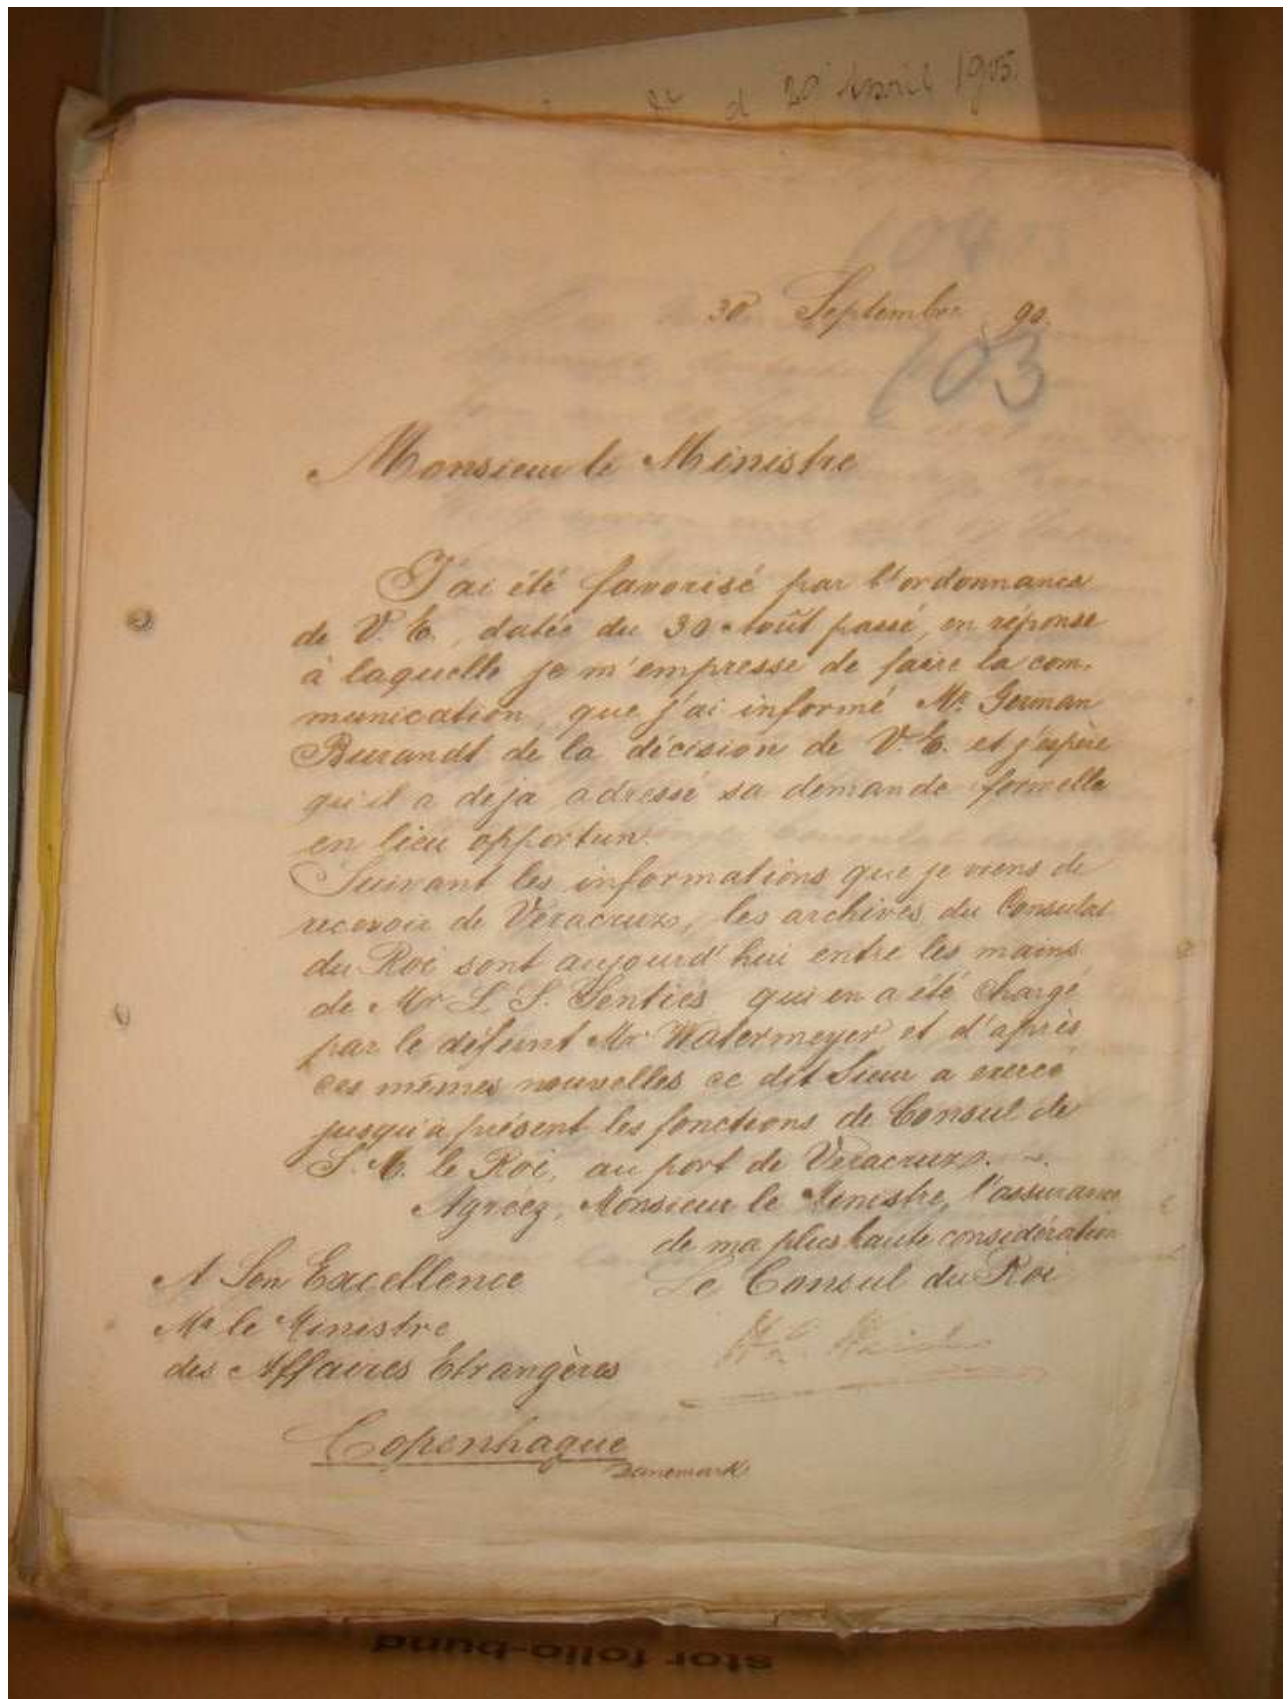 d 20 April 1905.
104
30 Septembre 90.
103
Monsieur le Ministre
J'ai été favorisé par l'ordonnance
de V. E., datée du 30 Août passé, en réponse
à laquelle je m'empresse de faire la com-
munication, que j'ai informé Mr. German
Burandt de la décision de V. E. et j'espère
qu'il a deja adressé sa demande formelle
en lieu opportun.
Suivant les informations que je viens de
recevoir de Veracruz, les archives du Consulat
du Roi sont aujourd'hui entre les mains
de Mr L. S. Senties qui en a été chargé
par le défunt Mr Watermeyer et d'après
ces mêmes nouvelles ce dit Sieur a exercé
jusqu'à présent les fonctions de Consul de
S. M. le Roi, au port de Veracruz. -.
Agréez, Monsieur le Ministre, l'assurance
de ma plus haute considération
Le Consul du Roi
A Son Excellence
Mr le Ministre
des Affaires Etrangères
Copenhague
Danemark
stor folio-bund